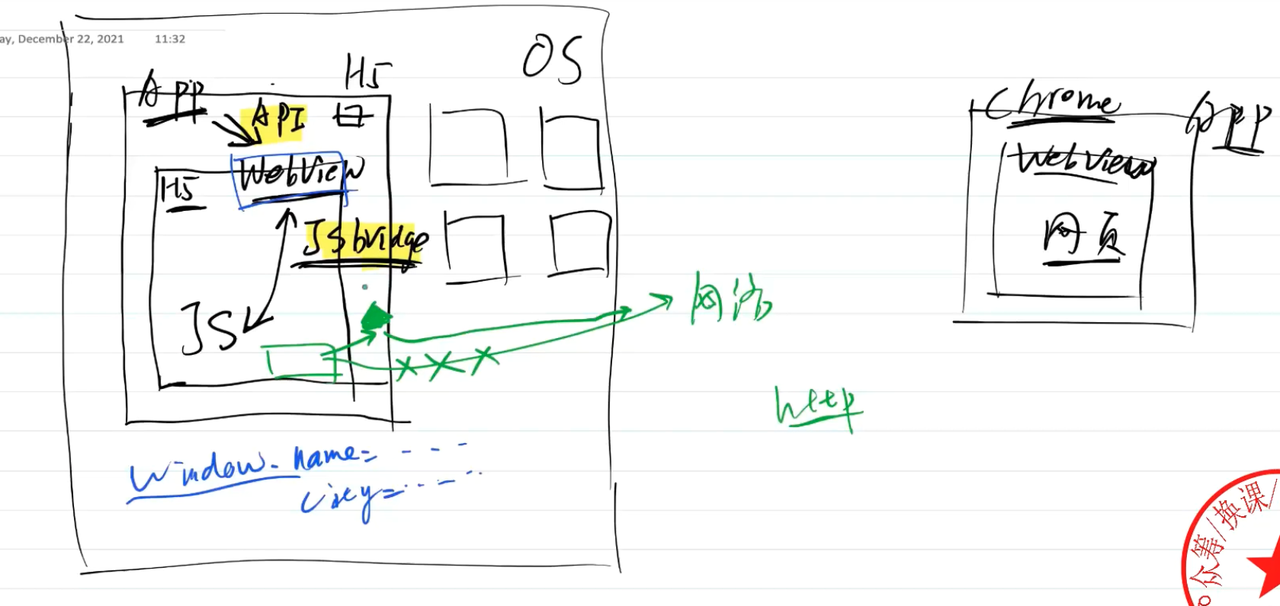 ay, December 22, 2021 11:32
OS
H5
App
API
WebView
H5
JSbridge
JS
网络
http
window.name= ...
city=......
Chrome
App
WebView
网页
众筹/换课/